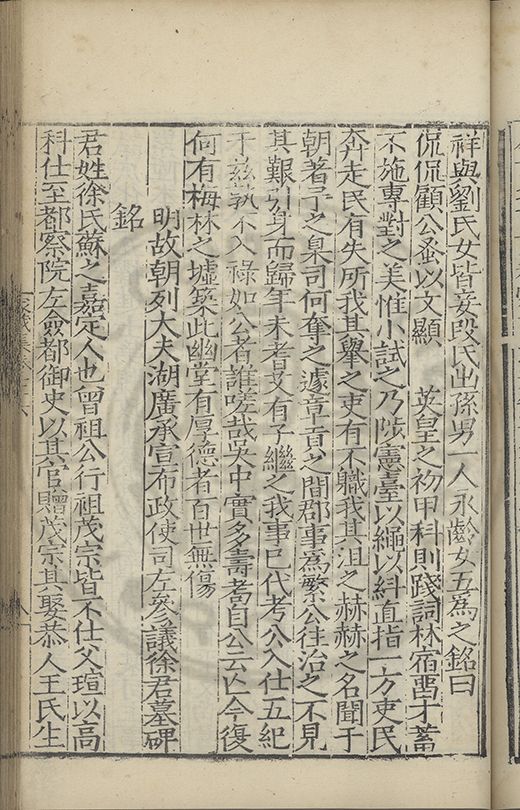 祥與劉氏女皆妾段氏出孫男一人永齡女五為之銘曰
侃侃顧公蚤以文顯 英皇之初甲科則踐詞林宿畱才蓄
不施專對之美惟小試之乃陟憲臺以繩以糾直指一方吏民
奔走民有失所我其舉之吏有不職我其沮之赫赫之名聞于
朝著予之臬司何奪之遽章貢之間郡事為繁公往治之不見
其艱引身而歸年未耆艾有子繼之我事已代考公入仕五紀
于茲孰不入祿如公者誰嗟哉吳中實多壽耇自公云亡今復
何有梅林之墟築此幽堂有厚德者百世無傷
明故朝列大夫湖廣承宣布政使司左參議徐君墓碑
銘
君姓徐氏蘇之嘉定人也曾祖公行祖茂宗皆不仕父瑄以高
科仕至都察院左僉都御史以其官贈茂宗其娶恭人王氏生